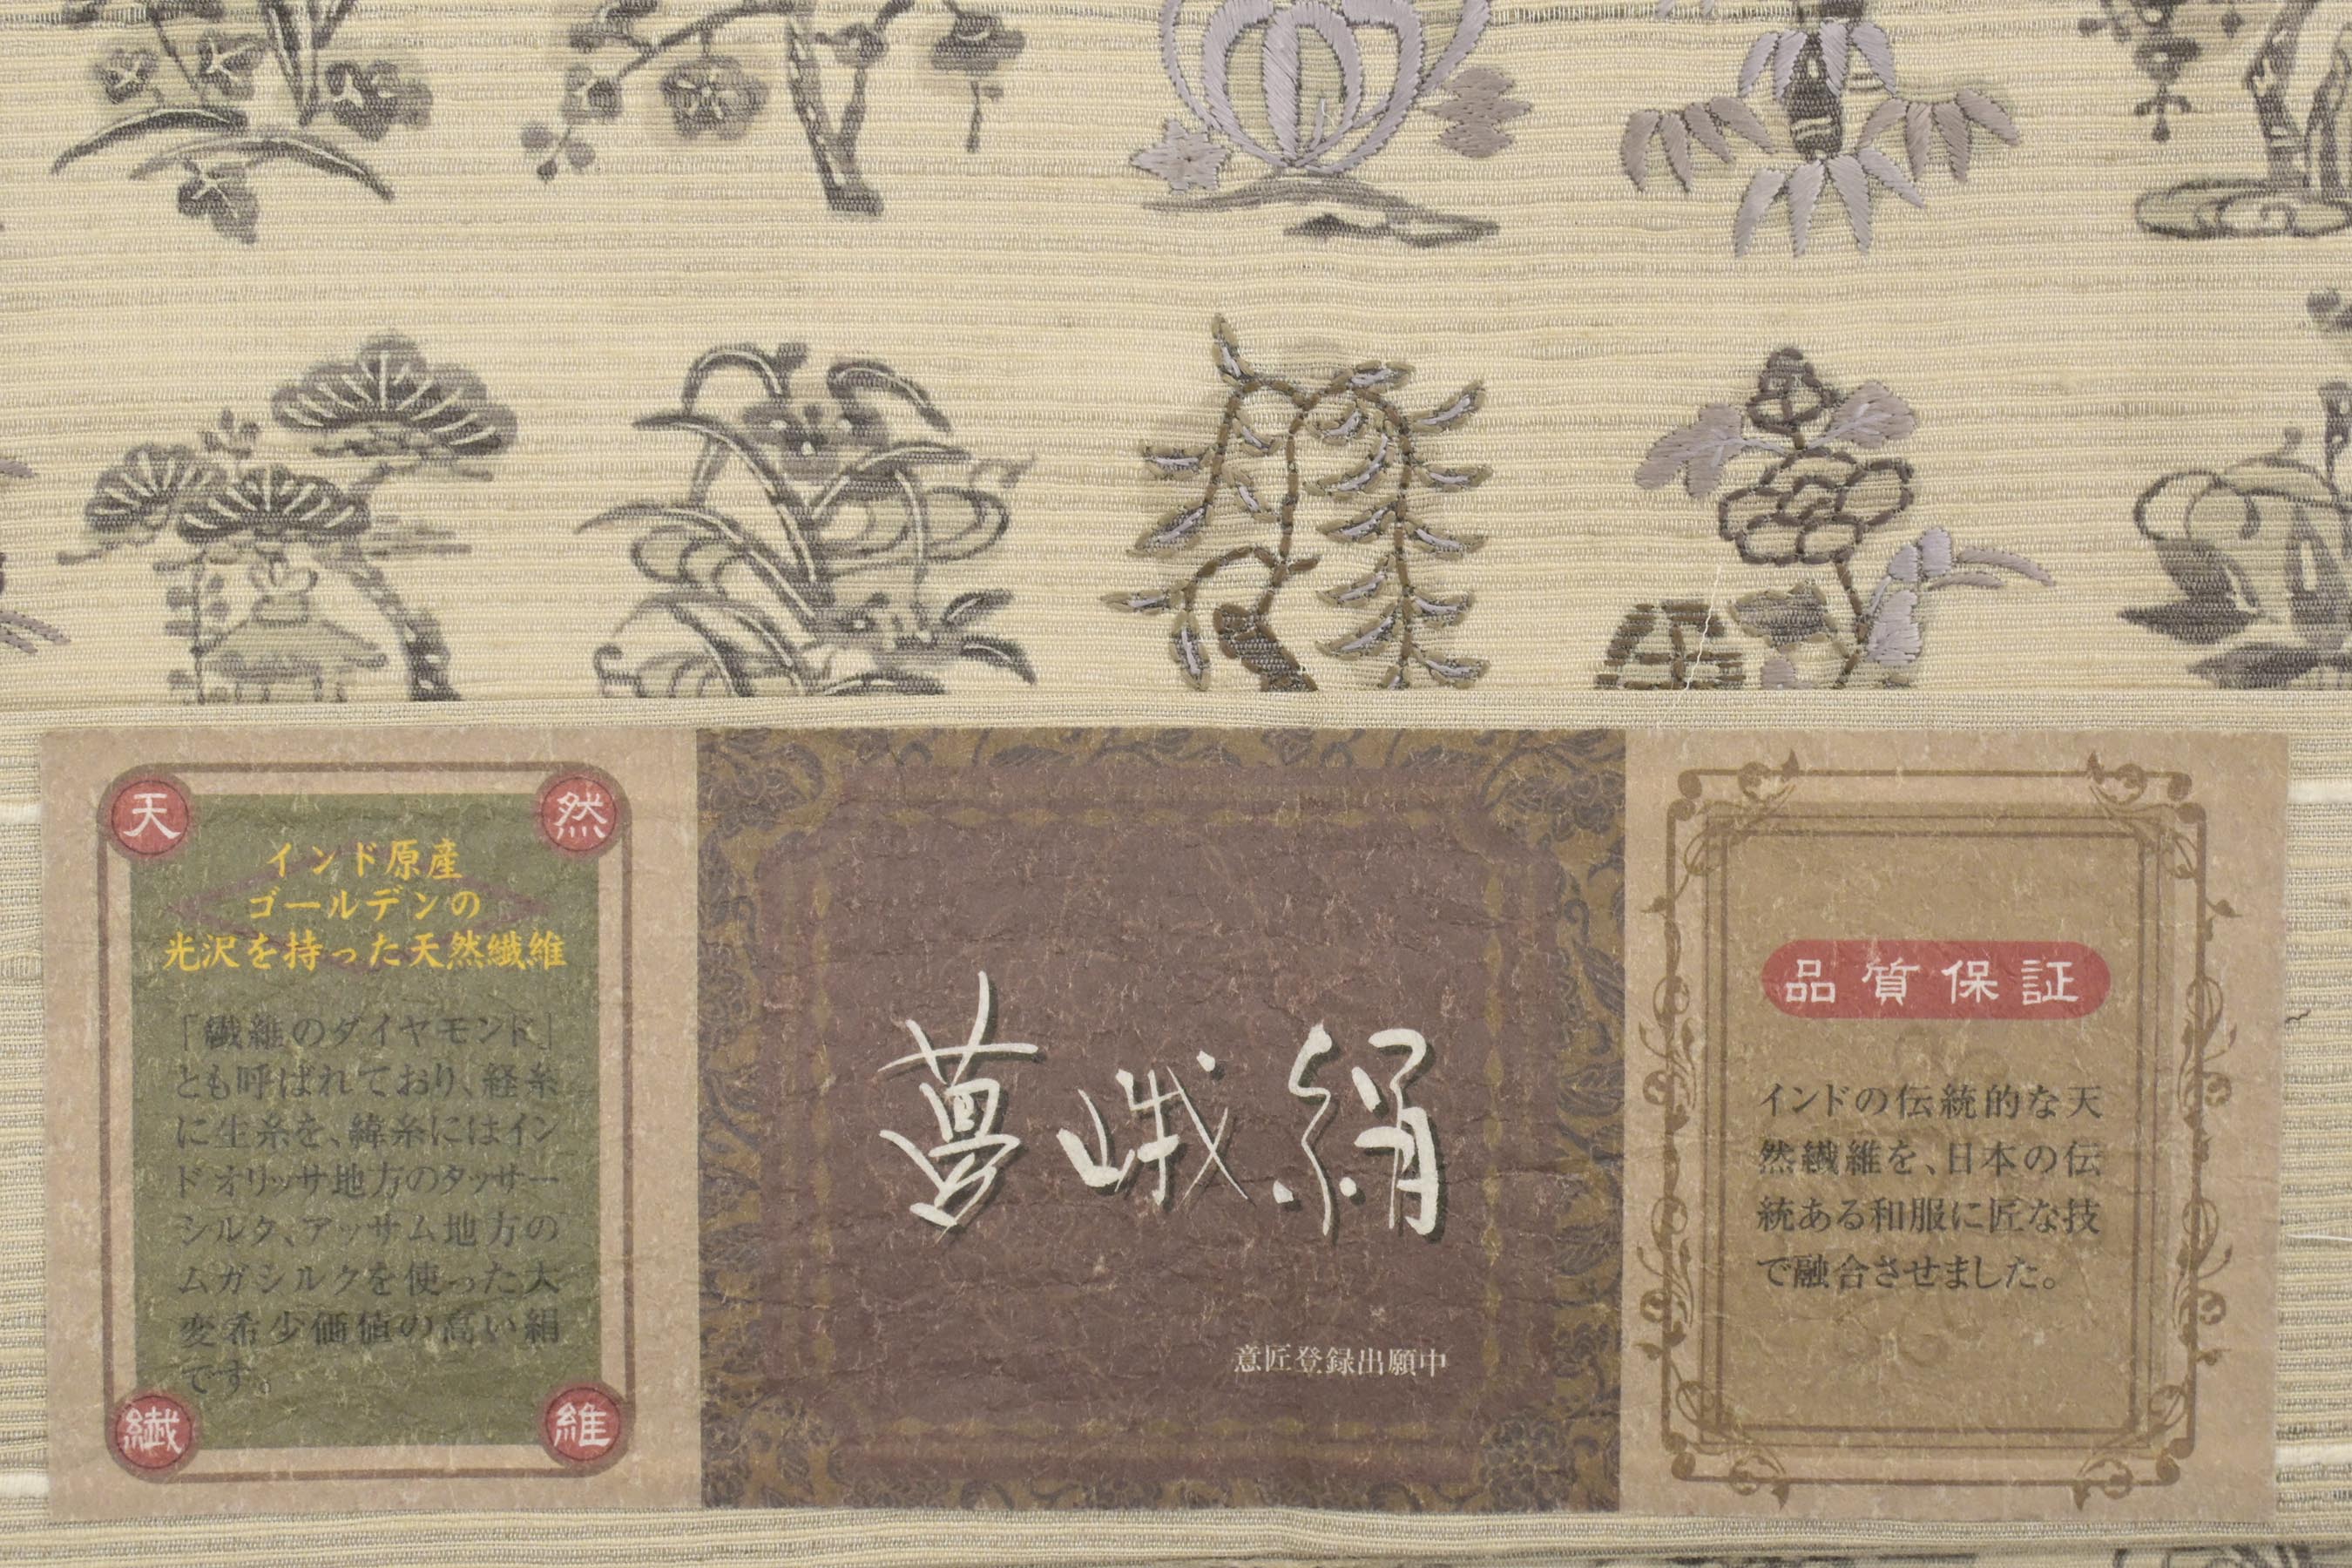 天然
インド原産
ゴールデンの
光沢を持った天然繊維
「繊維のダイヤモンド」
とも呼ばれており、経糸
に生糸を、緯糸にはイン
ドオリッサ地方のタッサー
シルク、アッサム地方の
ムガシルクを使った大
変希少価値の高い絹
です。
繊維
夢峨絹
意匠登録出願中
品質保証
インドの伝統的な天
然繊維を、日本の伝
統ある和服に匠な技
で融合させました。